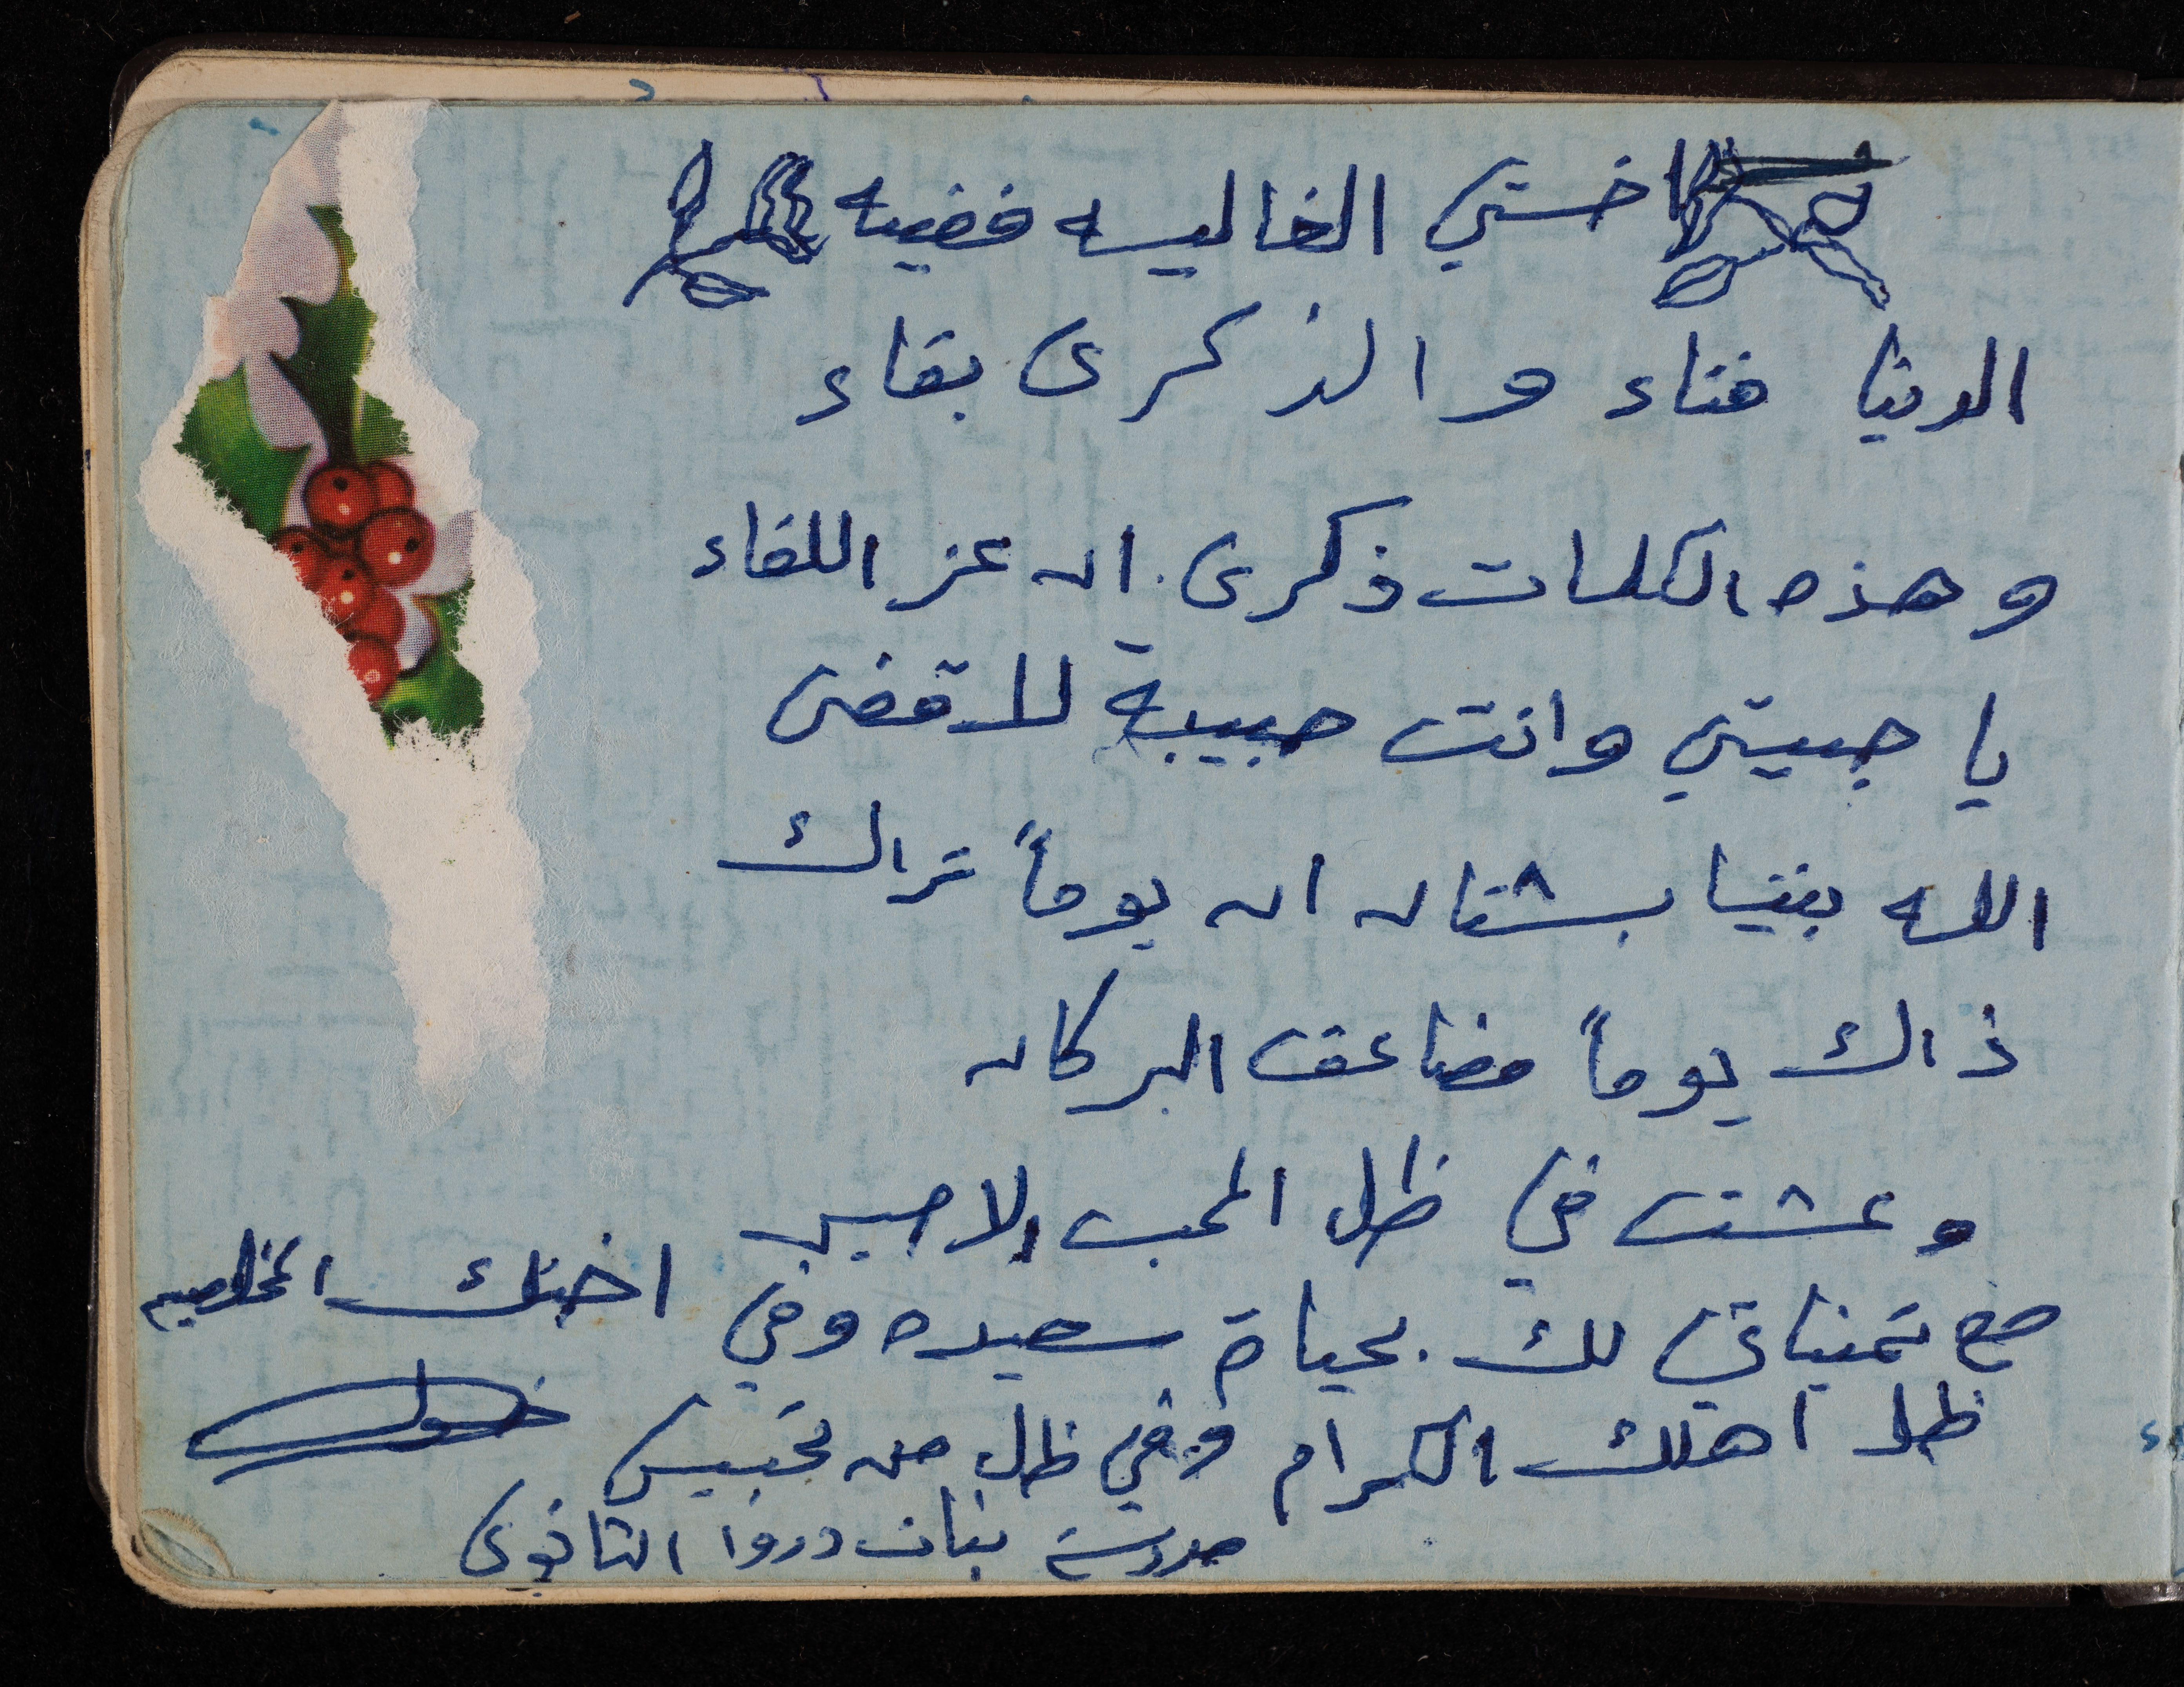 اختي الغاليه فضيه
الدنيا فناء والذكرى بقاء
وهذه الكلمات ذكرى ان عز اللقاء
يا حبيبتي وانت حبيبة
الله بشتان ان يوماً تراك
ذاك يوماً مضاعف البركان
وعشت في ظل المحب
مع تمنياتي لك بحياة سعيده وفي
اختك المخلصه
ظل اهلك الكرام وفي ظل من تحبين
خولة
مدرسة بنات دورا الثانوي